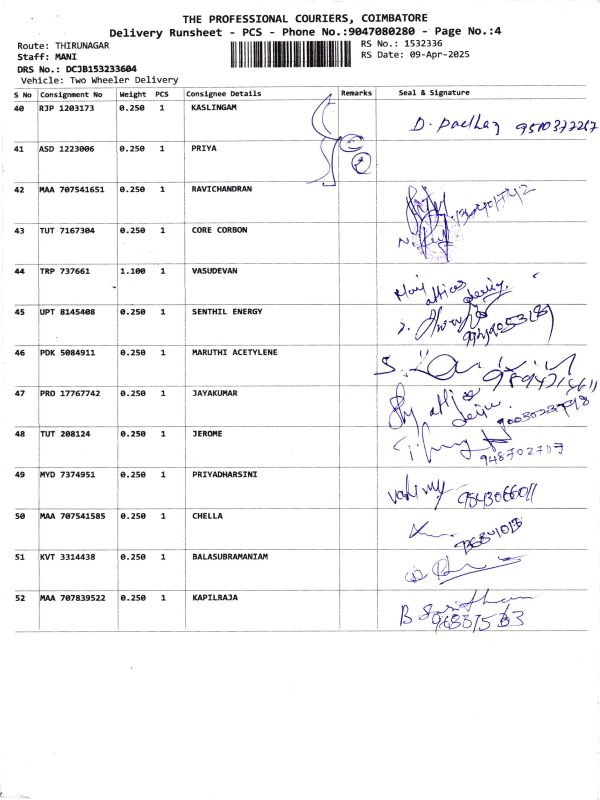 THE PROFESSIONAL COURIERS, COIMBATORE
Delivery Runsheet - PCS - Phone No.:9047080280 - Page No.:4
Route: THIRUNAGAR RS No.: 1532336
Staff: MANI RS Date: 09-Apr-2025
DRS No.: DCJB153233604
Vehicle: Two Wheeler Delivery
S No Consignment No Weight PCS Consignee Details Remarks Seal & Signature
40 RJP 1203173 0.250 1 KASLINGAM
41 ASD 1223006 0.250 1 PRIYA
42 MAA 707541651 0.250 1 RAVICHANDRAN
43 TUT 7167304 0.250 1 CORE CORBON
44 TRP 737661 1.100 1 VASUDEVAN
45 UPT 8145408 0.250 1 SENTHIL ENERGY
46 PDK 5084911 0.250 1 MARUTHI ACETYLENE
47 PRO 17767742 0.250 1 JAYAKUMAR
48 TUT 208124 0.250 1 JEROME
49 MYD 7374951 0.250 1 PRIYADHARSINI
50 MAA 707541585 0.250 1 CHELLA
51 KVT 3314438 0.250 1 BALASUBRAMANIAM
52 MAA 707839522 0.250 1 KAPILRAJA